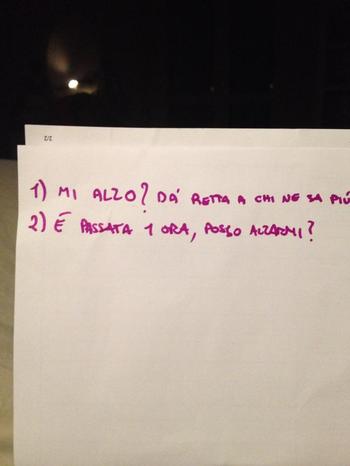 2/2
1) MI ALZO? DA' RETTA A CHI NE SA PIÙ
2) É PASSATA 1 ORA, POSSO ALZARMI?